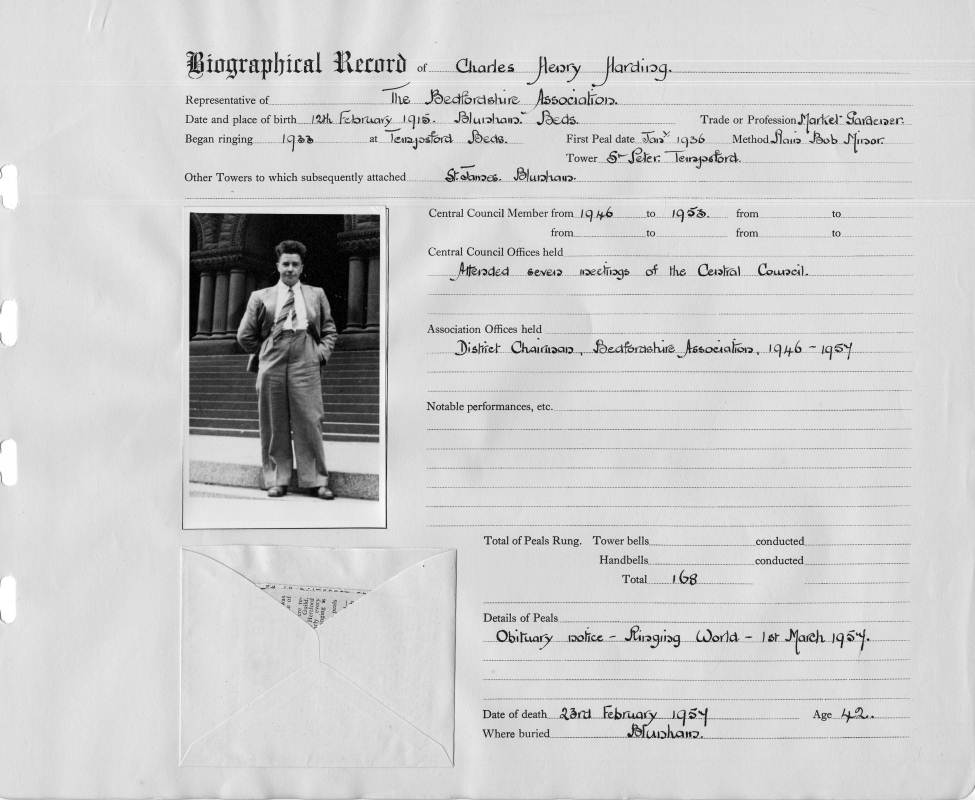 Biographical Record of Charles Henry Harding.
Representative of The Bedfordshire Association.
Date and place of birth 12th February 1915. Blunham. Beds. Trade or Profession Market-Gardener.
Began ringing 1933 at Tempsford Beds. First Peal date Jany 1936 Method Plain Bob Minor.
Tower St Peter. Tempsford.
Other Towers to which subsequently attached St. James. Blunham.
Central Council Member from 1946 to 1953. from to
from to from to
Central Council Offices held
Attended seven meetings of the Central Council.
Association Offices held
District Chairman, Bedfordshire Association, 1946 - 1957
Notable performances, etc.
Total of Peals Rung. Tower bells conducted
Handbells conducted
Total 168
Guild,
Hereford
every
peals
Details of Peals
Obituary notice - Ringing World - 1st March 1957.
Date of death 23rd February 1957 Age 42.
Where buried Blunham.